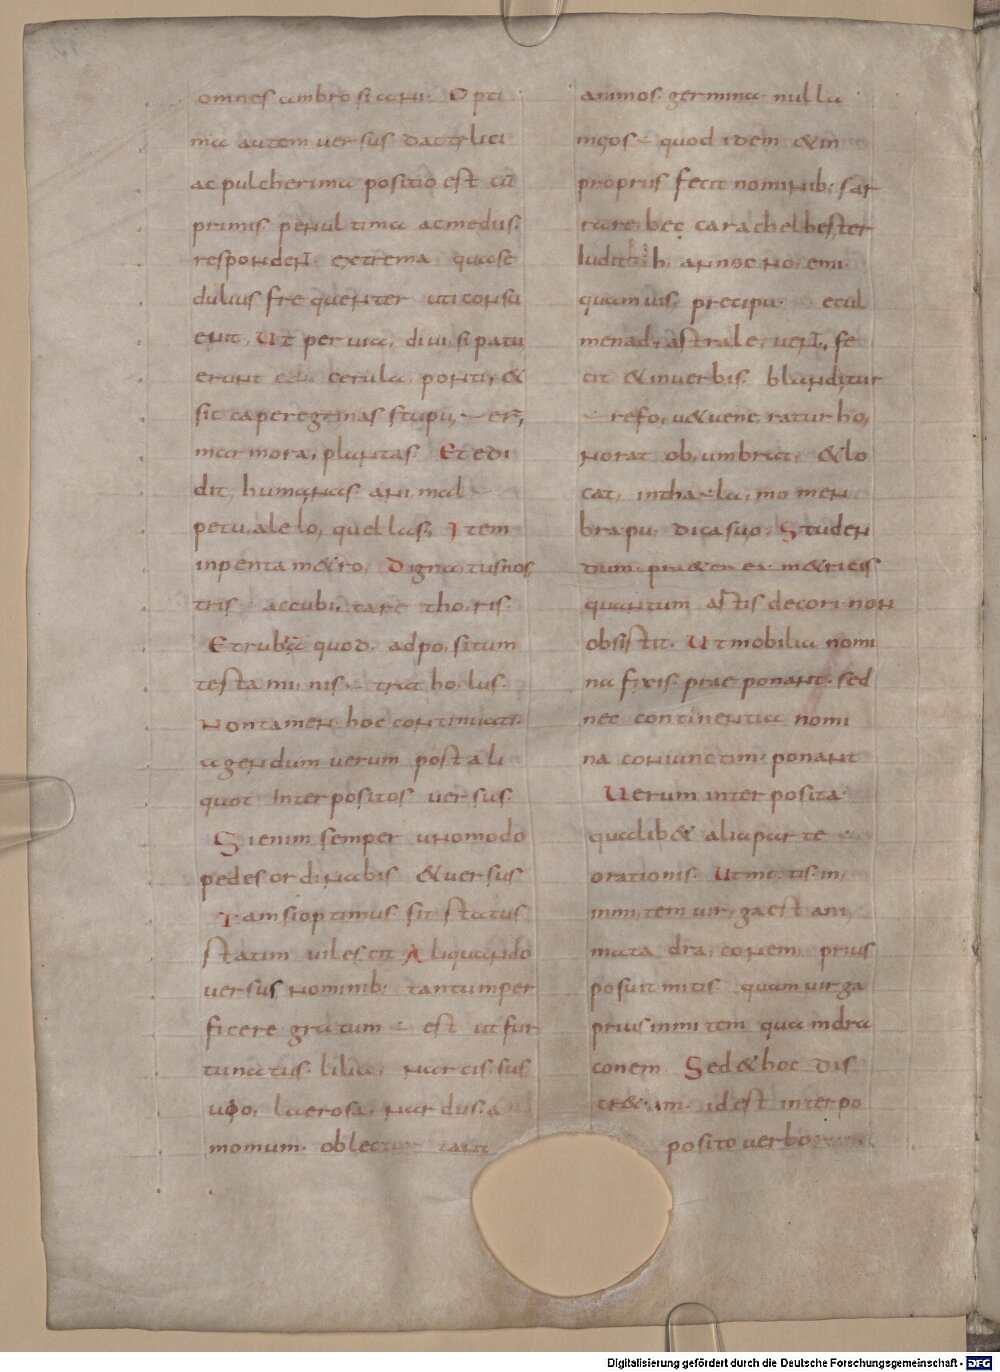 omnes ambrosiani. Opti
ma autem versus dactylici
ac pulcherima positio est cū
primis penultima ac mediis.
respondent extrema qua se
dulius frequenter uti consu
evit, Ut pervia, divi, si patu
erunt cerula, ponti, &
sic ca peregrinas stupu,
marmora, plantas. Et edi
dit, humanas animal
petu, ale lo, quellas, Item
in pentam&ro, Digna tus nos
tris accubi, tare tho, ris.
Et rubrā quod, adpo, situm
testa mi, nis tra ho, lus.
Non tamen hoc continuati.
agendum verum post ali
quot Interpositos versus.
Si enim semper uno modo
pedes ordinabis & versus
Tam si optimus sit status
statim vilescit Aliquando
versus nominib; tantum per
ficere gratum est ut fur
tunatus. lilia, narcissus
uϕo, la erosa, nardus.
momum. oblect
animos. germina nulla
meos quod idem & in
propriis fecit nominib; sar
rare bec carachel hester
ludit h annoe no, emi.
quamuis, precipu etul
menad, astrale, vent, fe
cit & in verbis. blanditur
refo, u& vene, ratur ho,
norat ob, umbrat, & lo
cat, intha la, mo men
bra pu, dica suo. Studen
dum
quantum astis decori non
obsistit. Ut mobilia nomi
na fixis praeponant. sed
nec continentia nomi
na coniunctim. ponant
Verum interposita
qualib& alia parte
orationis. Ut mi, tis. in,
inmi, tem vir, ga est ani,
mata dra, conem, prius
posuit mitis quam virga
prius inmitem quam dra
conem Sed & hoc dis
cr& im. id est interpo
posito verbo
Digitalisierung gefördert durch die Deutsche Forschungsgemeinschaft - DFG